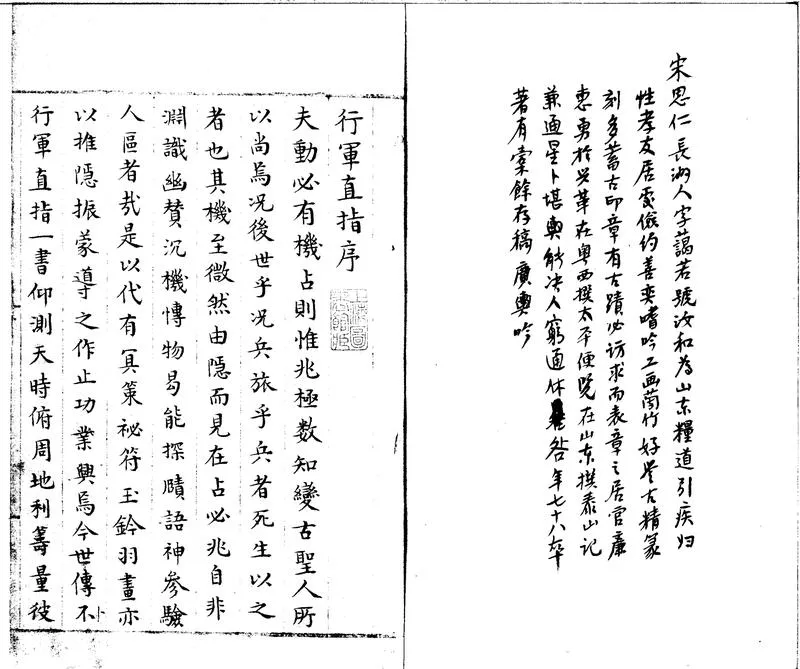 宋思仁長洲人字藹若號汝和為山东糧道引疾归
性孝友居處儉约善奕嗜吟工画蘭竹好学古精篆
刻多蓄古印章有古蹟必访求而表章之居官廉
惠勇於兴革在粤西撰太平便览在山东撰泰山记
兼通星卜堪輿能决人窮通休咎年七十八卒
著有橐餘存稿廣輿吟
行軍直指序
夫動必有機占則惟兆極數知變古聖人所
以尚焉况後世乎况兵旅乎兵者死生以之
者也其機至微然由隱而見在占必兆自非
淵識幽賛沉機博物曷能探賾語神參驗
人區者㢤是以代有冥策祕符玉鈐羽畫亦
以推隱振蒙導之作止功業興焉今世傳不
行軍直指一書仰測天時俯周地利籌量彼